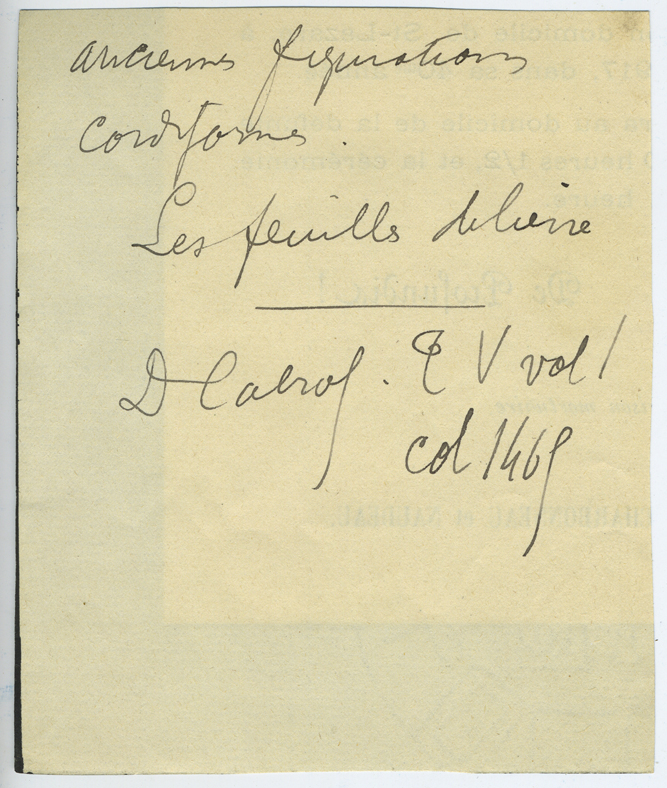 anciennes figurations
cordiformes.
Les feuilles de lierre
D Cabrol. T V vol 1
col 1469